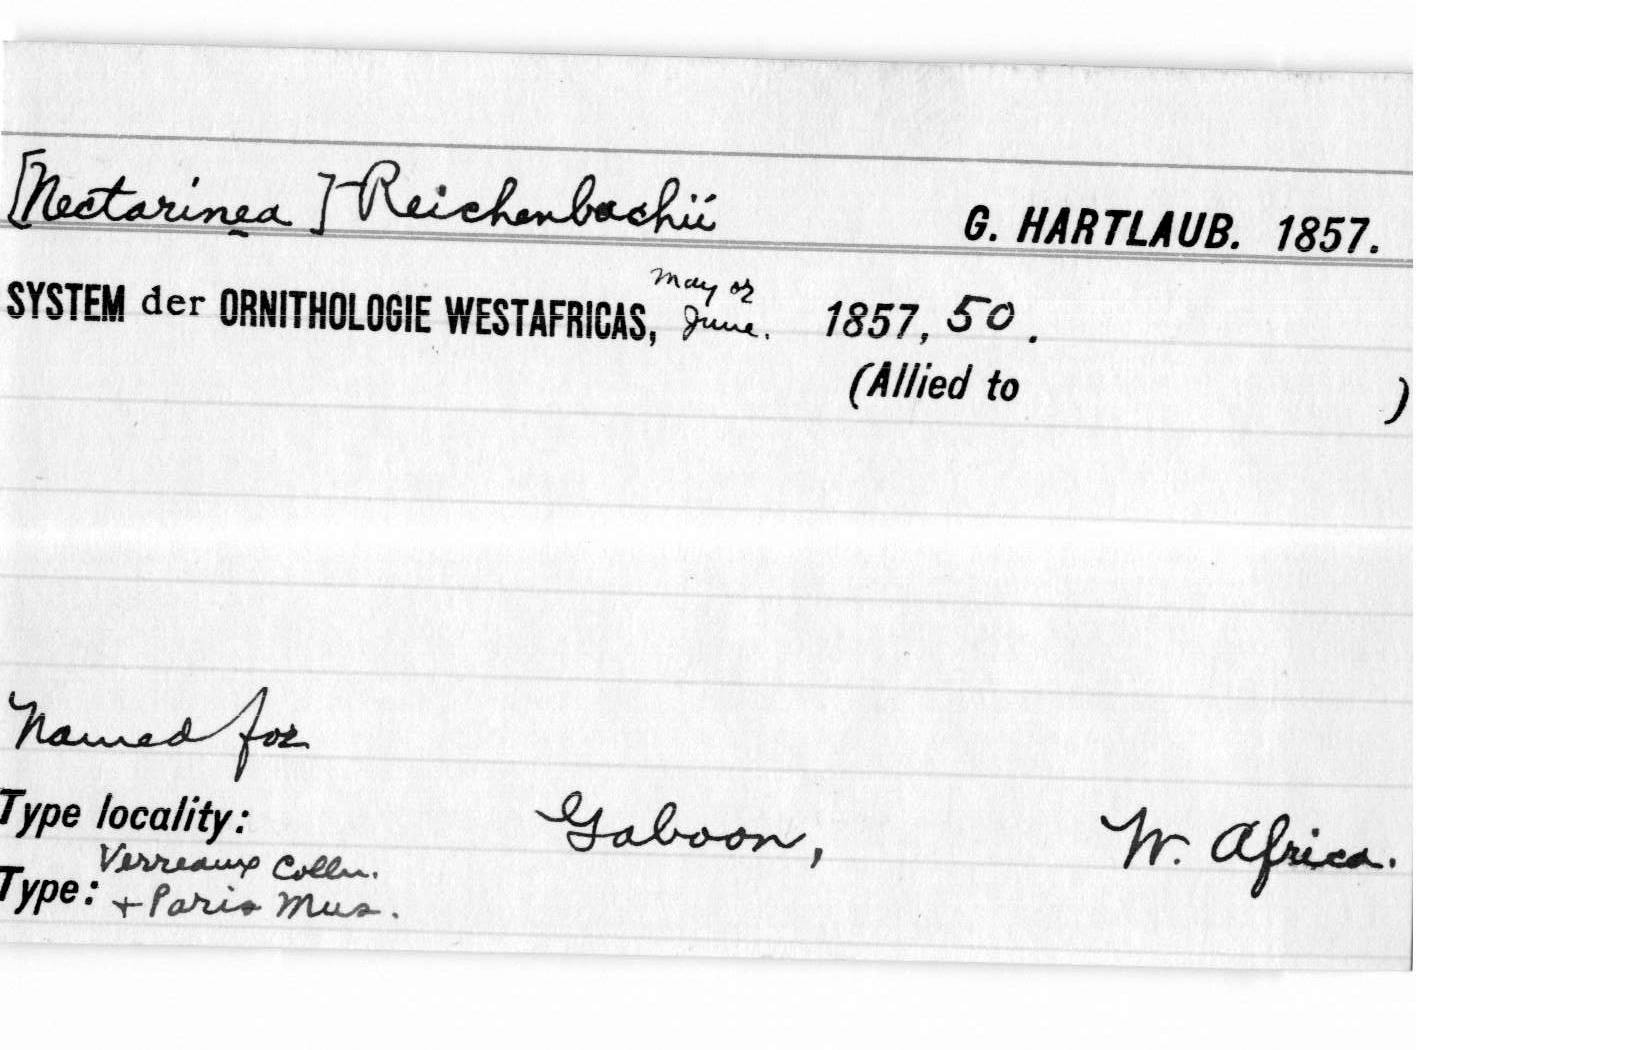 [Nectarinea ] Reichenbachii G. HARTLAUB. 1857.
SYSTEM der ORNITHOLOGIE WESTAFRICAS, May or June. 1857, 50.
(Allied to )
Named for
Type locality: Gaboon, W. Africa.
Type: Verreaux Colln.
+ Paris Mus.